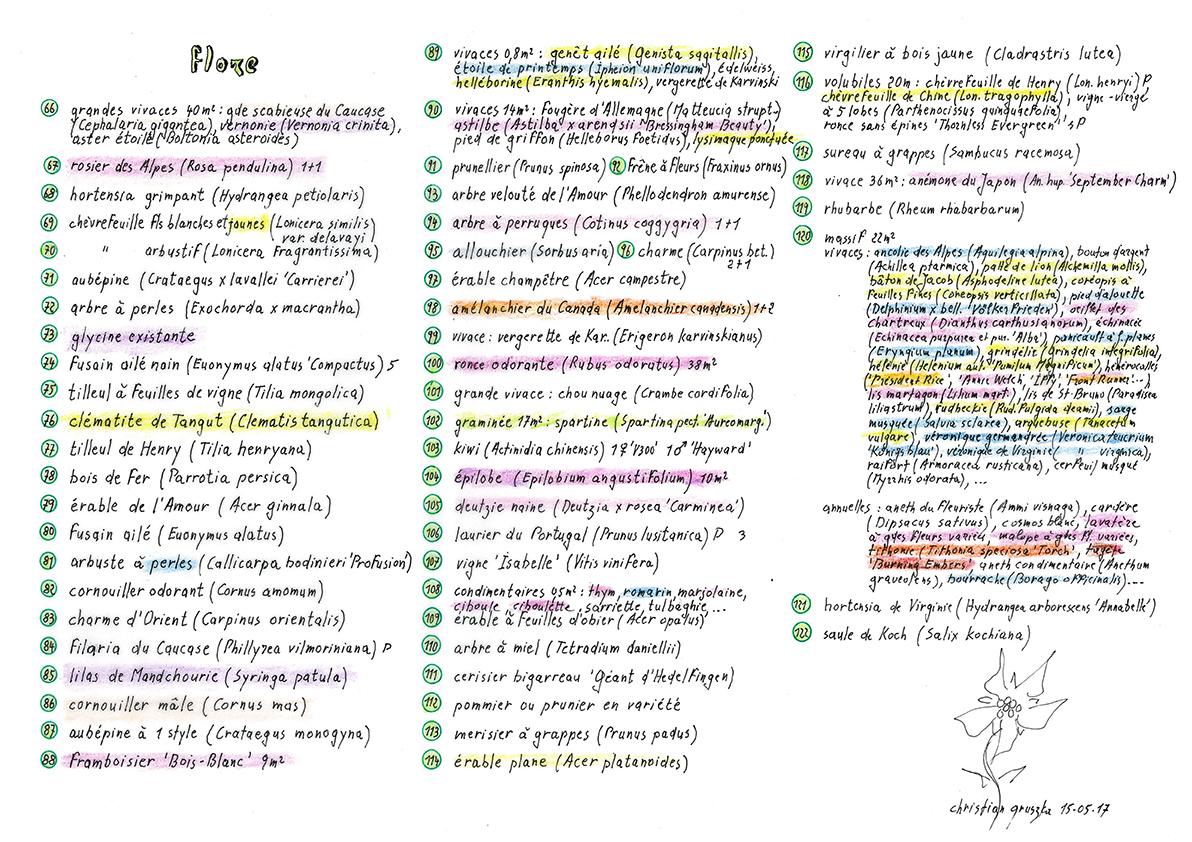 Flore
66 grandes vivaces 40m² : gde scabieuse du Caucase
(Cephalaria gigantea), vernonie (Vernonia crinita),
aster étoilé (Boltonia asteroides)
67 rosier des Alpes (Rosa pendulina) 1+1
68 hortensia grimpant (Hydrangea petiolaris)
69 chèvrefeuille fls blanches et jaunes (Lonicera similis
var. delavayi)
70 " arbustif (Lonicera fragrantissima)
71 aubépine (Crataegus x lavallei 'Carrierei')
72 arbre à perles (Exochorda x macrantha)
73 glycine existante
74 fusain ailé nain (Euonymus alatus 'Compactus') 5
75 tilleul à feuilles de vigne (Tilia mongolica)
76 clématite de Tangut (Clematis tangutica)
77 tilleul de Henry (Tilia henryana)
78 bois de fer (Parrotia persica)
79 érable de l'Amour (Acer ginnala)
80 fusain ailé (Euonymus alatus)
81 arbuste à perles (Callicarpa bodinieri 'Profusion')
82 cornouiller odorant (Cornus amomum)
83 charme d'Orient (Carpinus orientalis)
84 filaria du Caucase (Phillyrea vilmoriniana) P
85 lilas de Mandchourie (Syringa patula)
86 cornouiller mâle (Cornus mas)
87 aubépine à 1 style (Crataegus monogyna)
88 framboisier 'Bois-Blanc' 9m²
89 vivaces 0,8m² : genêt ailé (Genista sagitallis),
étoile de printemps (Ipheion uniflorum), édelweiss,
helléborine (Eranthis hyemalis), vergerette de Karvinski
90 vivaces 14m² : fougère d'Allemagne (Matteucia strupt.)
astilbe (Astilba x arendsii 'Bressingham Beauty'),
pied de griffon (Helleborus foetidus), lysimaque ponctuée
91 prunellier (Prunus spinosa) 92 frêne à fleurs (Fraxinus ornus)
93 arbre velouté de l'Amour (Phellodendron amurense)
94 arbre à perruques (Cotinus coggygria) 1+1
95 allouchier (Sorbus aria) 96 charme (Carpinus bet.)
2+1
97 érable champêtre (Acer campestre)
98 amélanchier du Canada (Amelanchier canadensis) 1+2
99 vivace : vergerette de Kar. (Erigeron karvinskianus)
100 ronce odorante (Rubus odoratus) 38m²
101 grande vivace : chou nuage (Crambe cordifolia)
102 graminée 17m² : spartine (Spartina pect. 'Aureomarg.')
103 kiwi (Actinidia chinensis) 1♀ 1♂ 'Hayward'
104 épilobe (Epilobium angustifolium) 10m²
105 deutzie naine (Deutzia x rosea 'Carminea')
106 laurier du Portugal (Prunus lusitanica) P 3
107 vigne 'Isabelle' (Vitis vinifera)
108 condimentaires 45m² : thym, romarin, marjolaine,
ciboule, ciboulette, sarriette, tulbaghie, ...
109 érable à feuilles d'obier (Acer opalus)
110 arbre à miel (Tetradium daniellii)
111 cerisier bigarreau 'Géant d'Hedelfingen)
112 pommier ou prunier en variété
113 merisier à grappes (Prunus padus)
114 érable plane (Acer platanoides)
115 virgilier à bois jaune (Cladrastris lutea)
116 volubiles 20m : chèvrefeuille de Henry (Lon. henryi) P
chèvrefeuille de Chine (Lon. tragophylla), vigne-vierge
à 5 lobes (Parthenocissus quinquefolia)
ronce sans épines 'Thornless Evergreen' sP
117 sureau à grappes (Sambucus racemosa)
118 vivace 36m² : anémone du Japon (An. hup. 'September Charm')
119 rhubarbe (Rheum rhabarbarum)
120 massif 22m²
vivaces : ancolie des Alpes (Aquilegia alpina), bouton d'argent
(Achillea ptarmica), patte de lion (Alchemilla mollis),
bâton de Jacob (Asphodeline lutea), coréopsis à
feuilles fines (Coreopsis verticillata), pied d'alouette
(Delphinium x bell. 'Völkerfrieden'), oeillet des
chartreux (Dianthus carthusianorum), échinacée
(Echinacea purpurea et pur. 'Alba'), panicault à f. planes
(Eryngium planum), grindélie (Grindelia integrifolia),
hélénie (Helenium aut. 'Pumilum Magnificum'), hémérocalles
('Président Rice', 'Annie Welch', 'Front Runner'...)
lis martagon (Lilium mart.), lis de St-Bruno (Paradisea
liliastrum), rudbeckie (Rud. fulgida deamii), sauge
musquée (Salvia sclarea), arquebuse (Tanacetum
vulgare), véronique germandrée (Veronica teucrium
'Königsblau'), véronique de Virginie ( " virginica),
raifort (Armoracea rusticana), cerfeuil musqué
(Myrrhis odorata), ...
annuelles : aneth du fleuriste (Ammi visnaga), cardère
(Dipsacus sativus), cosmos blanc, lavatère
à gdes fleurs variée, malope à gdes fl. variées,
tithonie (Tithonia speciosa 'Torch', tagète
'Burning Embers' aneth condimentaire (Anethum
graveolens), bourrache (Borago officinalis)....
121 hortensia de Virginie (Hydrangea arborescens 'Annabelle')
122 saule de Koch (Salix kochiana)
christian gruszka 15-05-17